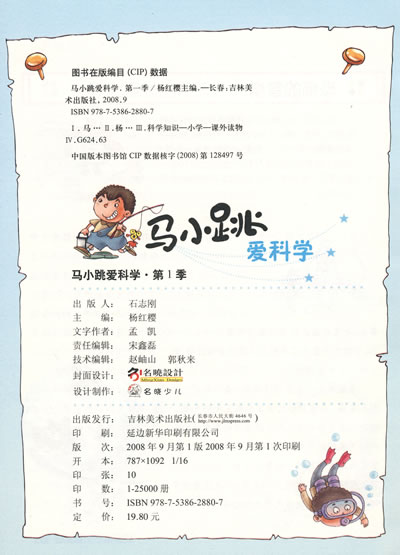 图书在版编目(CIP)数据
马小跳爱科学.第一季/杨红樱主编.—长春:吉林美
术出版社,2008.9
ISBN 978-7-5386-2880-7
Ⅰ.马… Ⅱ.杨… Ⅲ.科学知识—小学—课外读物
Ⅳ.G624.63
中国版本图书馆CIP数据核字(2008)第128497号
马小跳
爱科学
马小跳爱科学·第1季
出版人: 石志刚
主编: 杨红樱
文字作者: 孟凯
责任编辑: 宋鑫磊
技术编辑: 赵岫山 郭秋来
封面设计: 名曉設計
设计制作: 名曉少儿
出版发行: 吉林美术出版社(长春市人民大街4646号
http://www.jlmspress.com)
印刷: 延边新华印刷有限公司
版次: 2008年9月第1版2008年9月第1次印刷
开本: 787×1092 1/16
印张: 10
印数: 1-25000册
书号: ISBN 978-7-5386-2880-7
定价: 19.80元